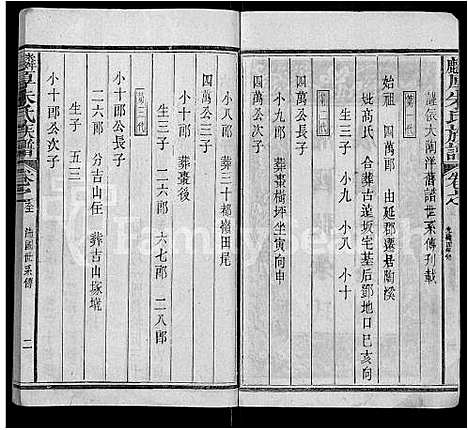 朱氏族譜
謹依大陶洋舊譜世系傳刊載
第一代
始祖 四萬郎 由延郡遷居陶溪
妣高氏 葬古蓬坂宅基后鄧地口巳亥向
生三子 小九 小八 小十
第二代
四萬公長子
小九郎 葬棗樹坪坐寅向申
四萬公次子
小八郎 葬三十都嶺田尾
四萬公三子
小十郎 葬棗後
生三子 二六郎 六七郎 二八郎
第三代
小十公長子
二六郎 分吉山住 葬吉山塚坑
生子 五三
小十公次子
朱氏族譜
陶國世系傳
二
FamilySearch